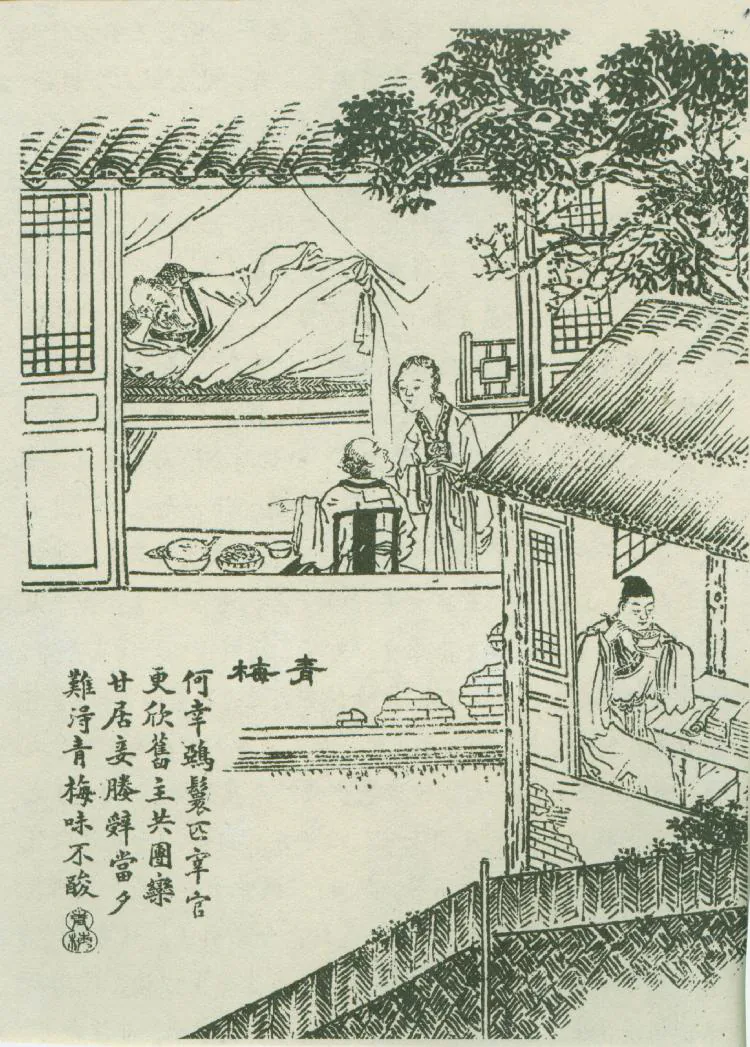 青梅
何幸鵶鬟匹宰官
更欣舊主共團欒
甘居妾媵辤當夕
難淂青梅味不酸